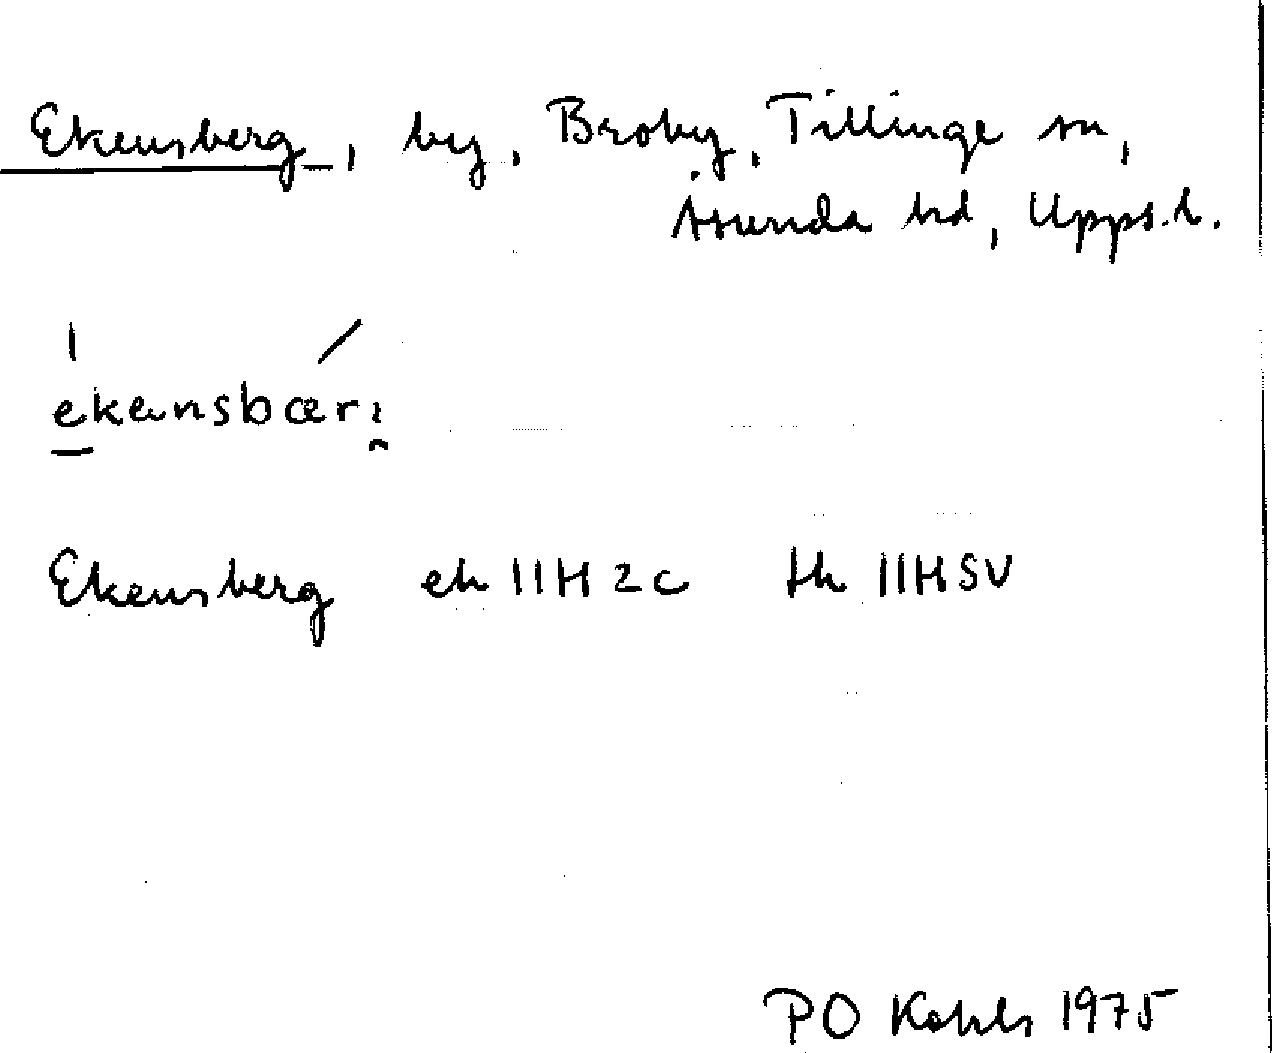 Ekensberg, by, Broby, Tillinge sn,
Åsunda hd, Upps. l.
ekɐnsbærɪ̯
Ekensberg ek 11H2c tk 11HSV
PO Kohls 1975